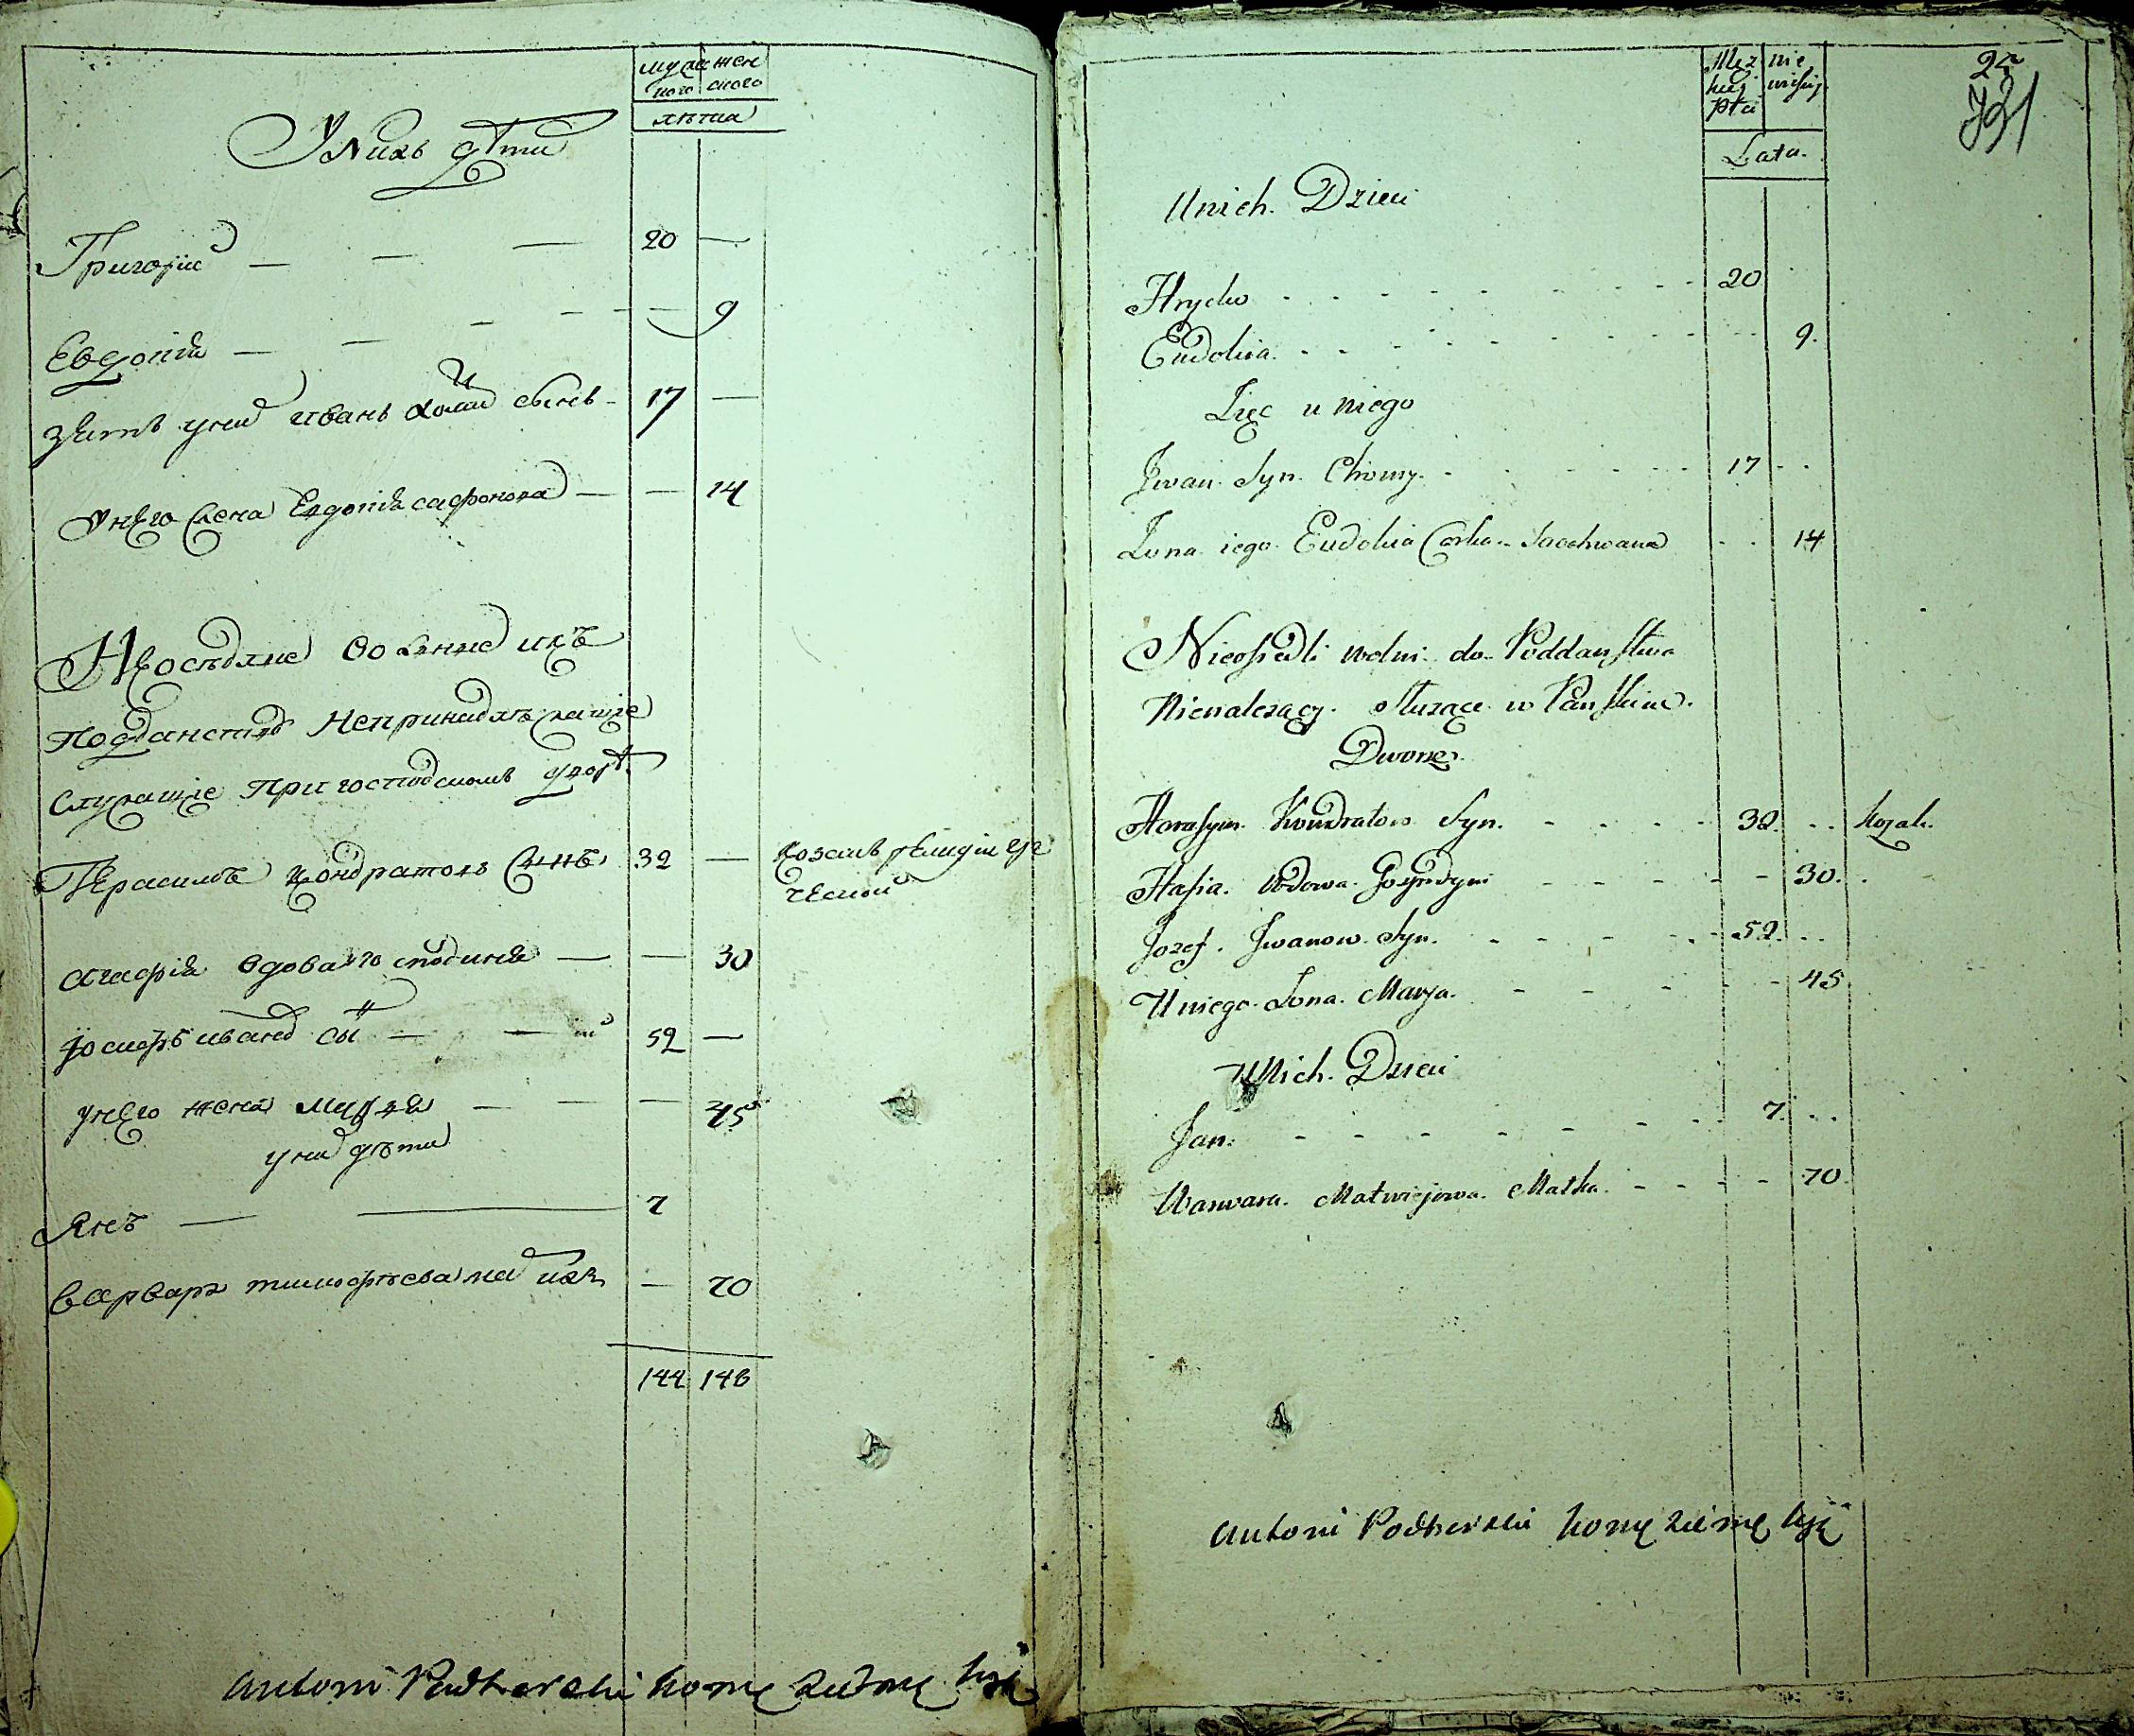 муже
ского
жен
ского
лѣта
У Нихъ дѣти
Григорій — — — 20 —
Евдокія — — — — — 9
Зять у ни Иванъ Хоми сынъ 17 —
У него жена Евдокія Сафонова — — 14
Неоседлие волние икъ
подданству непринадлежащіе
служащіе при господскомъ дворѣ
Герасимъ Кондратовъ сынъ 32 — козакъ релиgіи гре
ческой
Агафія вдова господиня — — 30
Іосифъ Ивано сы — — 52 —
у него жена Марія — — — 45
у ни дѣти
Янъ — — 7
Варвара Тимофѣева ма ихъ — 70
144 146
Antoni Podherski
Męz
kiej
Płci
nie
wiesiej
Lata.
25
731
Unich. Dzieci
Hryćko 20
Eudokia. 9.
Zięc u niego
Jwan Syn. Chomy. 17
Zona iego Eudokia Corka 14
Nieosiedli wolni do Poddaństwa
Nienalezący. słuzące w Pańskim
Dworze.
Harasym Kondratow Syn. 32. Kozak.
Hafia. Wdowa. Gospodyni 30.
Jozef. Jwanow Syn. 52.
U niego Zona. Marya. 45
U Nich. Dzieci
Jan. 7.
Warwara. Matwiejowa. Matka. 70.
Antoni Podherski